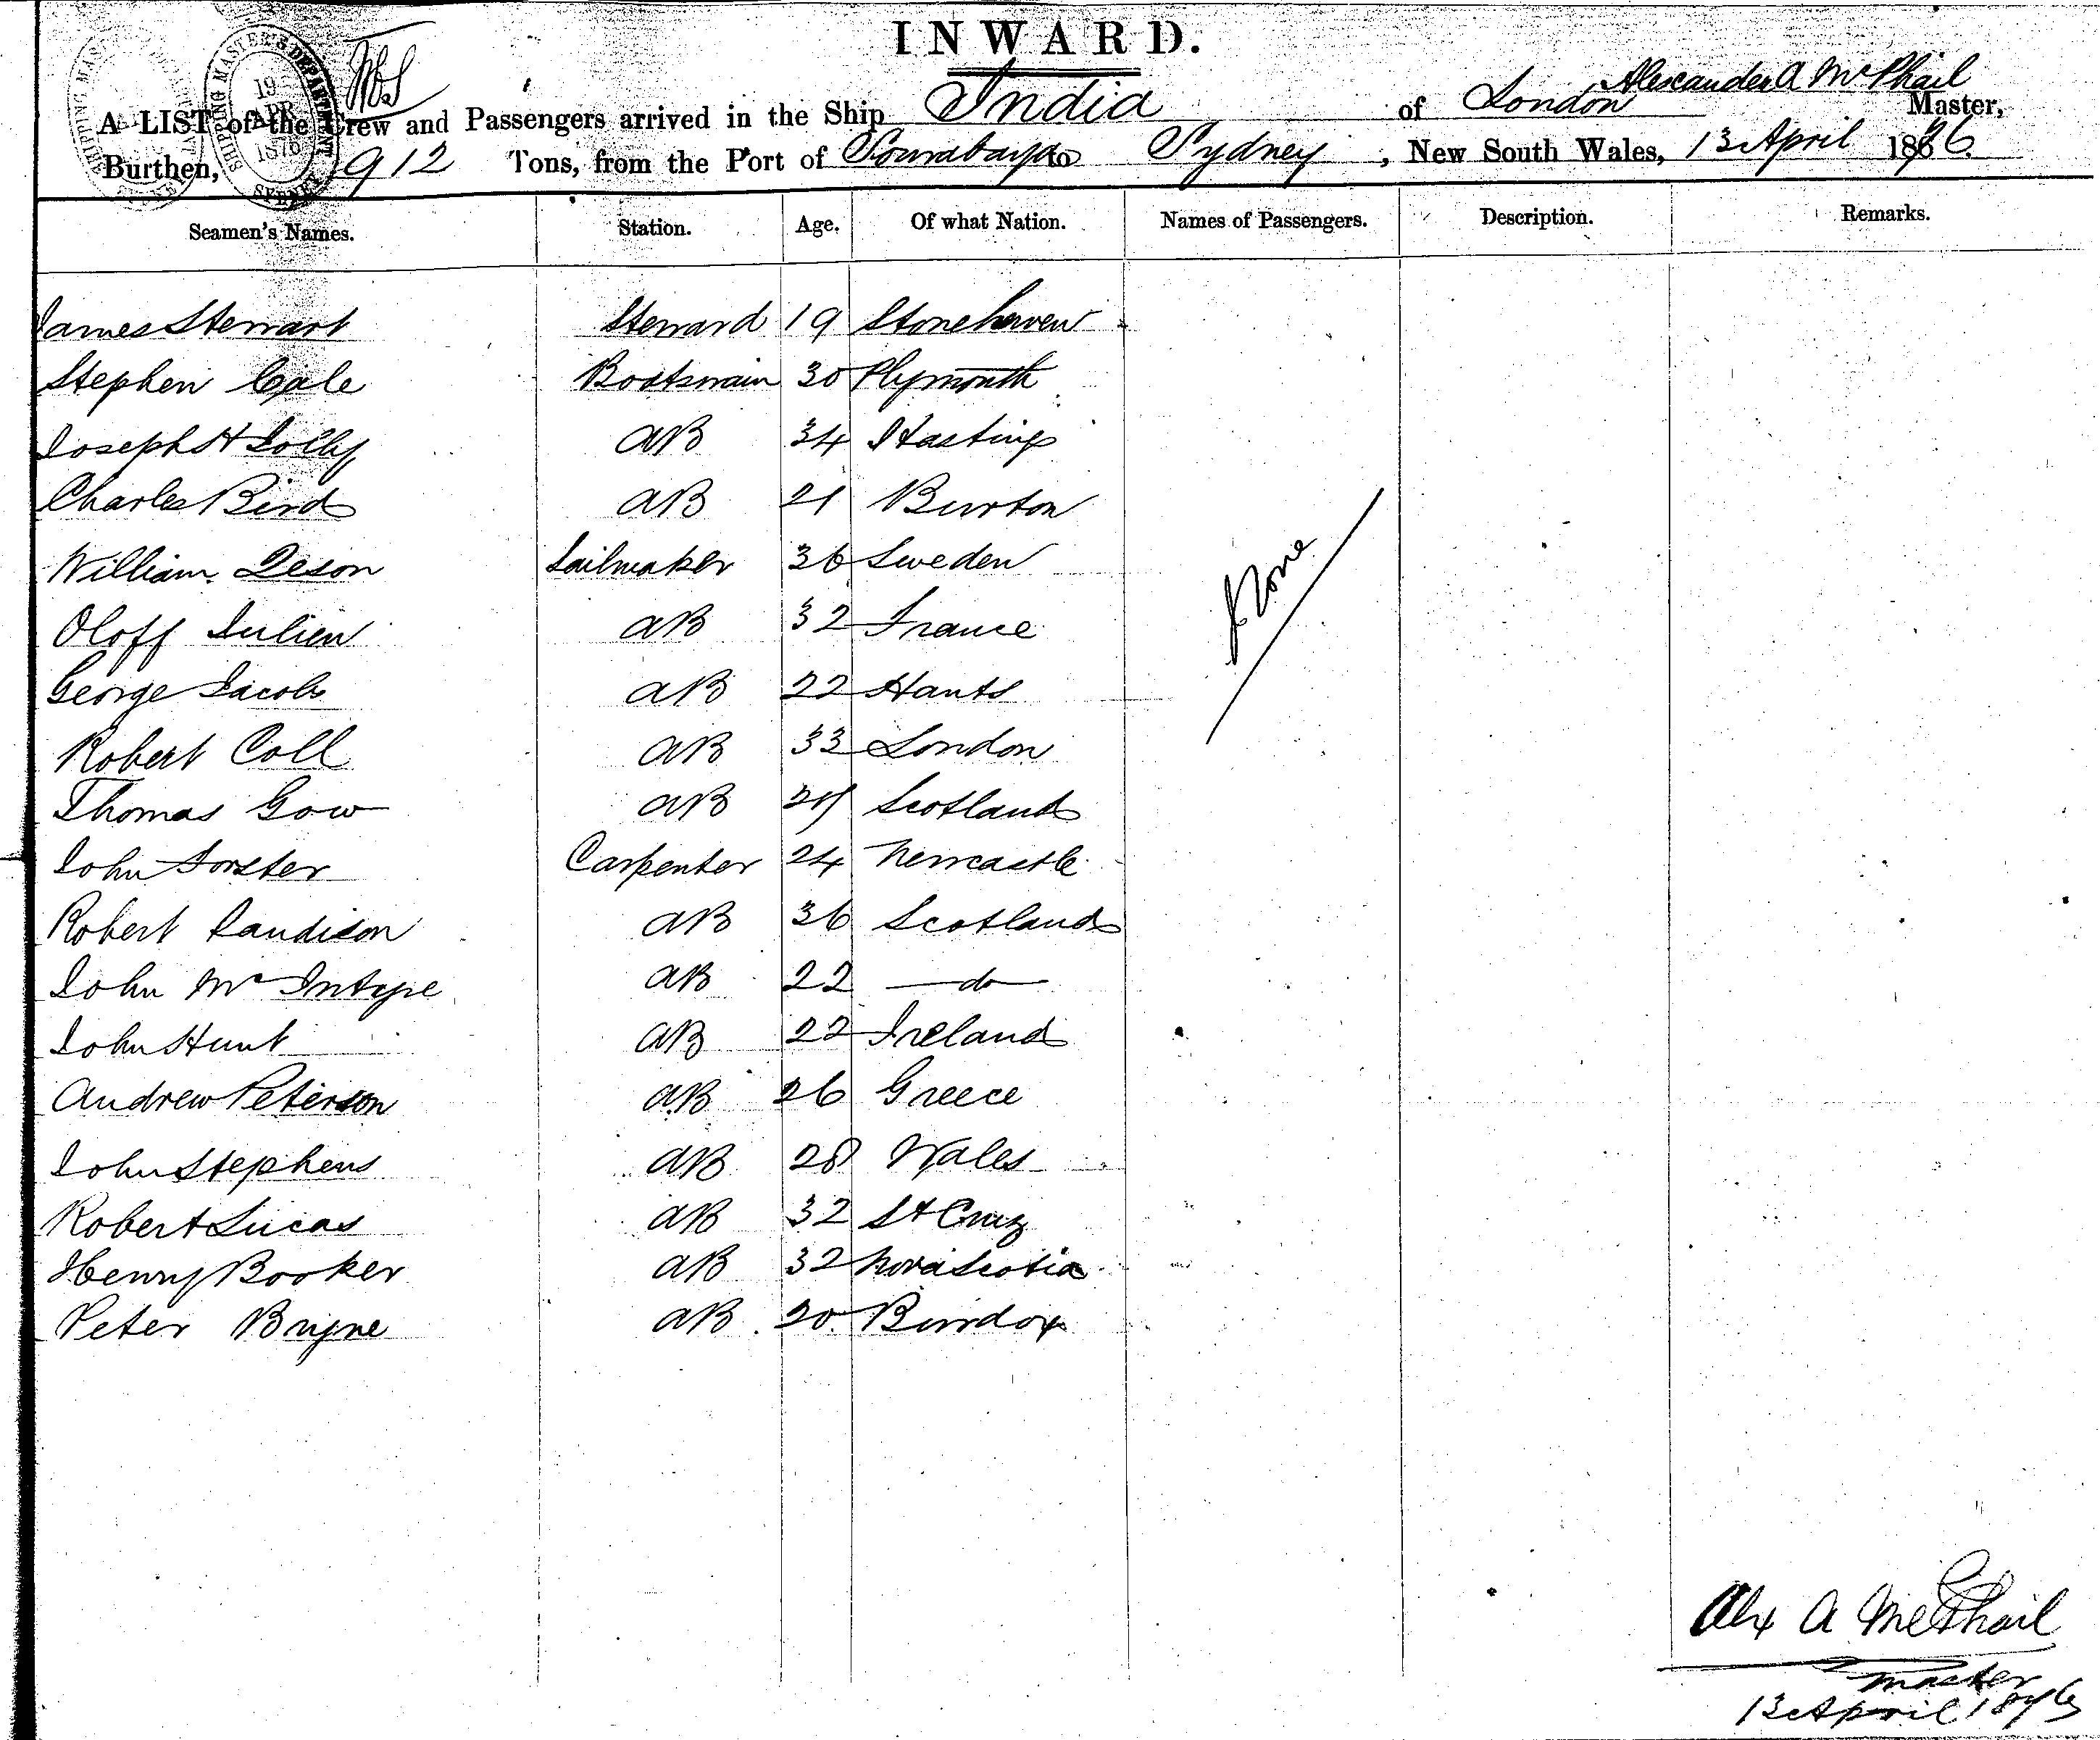 INWARD.
SHIPPING MASTER'S DEPARTMENT 19 APR 1876 SYDNEY
Alexander A McPhail
A LIST of the Crew and Passengers arrived in the Ship India of London Master,
Burthen, 912 Tons, from the Port of Sourabaya to Sydney, New South Wales, 13 April 1876
Seamen's Names. Station. Age. Of what Nation. Names of Passengers. Description. Remarks.
James Stewart Steward 19 Stonehaven
Stephen Cale Boatswain 30 Plymouth
Joseph H Jolly AB 34 Hastings
Charles Bird AB 21 Burton
William Deson Sailmaker 36 Sweden
Oloff Julien AB 32 France
None
George Jacobs AB 22 Hants
Robert Coll AB 33 London
Thomas Gow AB Scotland
John Forster Carpenter 24 Newcastle
Robert Sandison AB 36 Scotland
John McIntyre AB 22 do
John Hunt AB 22 Ireland
Andrew Peterson AB 26 Greece
John Stephens AB 28 Wales
Robert Lucas AB 32 St Cruz
Henry Booker AB 32 Nova Scotia
Peter Bryne AB 20
Alex A McPhail
Master
13 April 1876